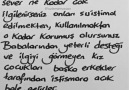 sever ne kadar çok
ilgilenirseniz onları suistimal
edilmekten, kullanılmaktan
o kadar korumuş olursunuz.
Babalarından yeterli desteği
ve ilgiyi görmeyen kız
çocukları başka erkekler
tarafından istismara açık
hale gelirler